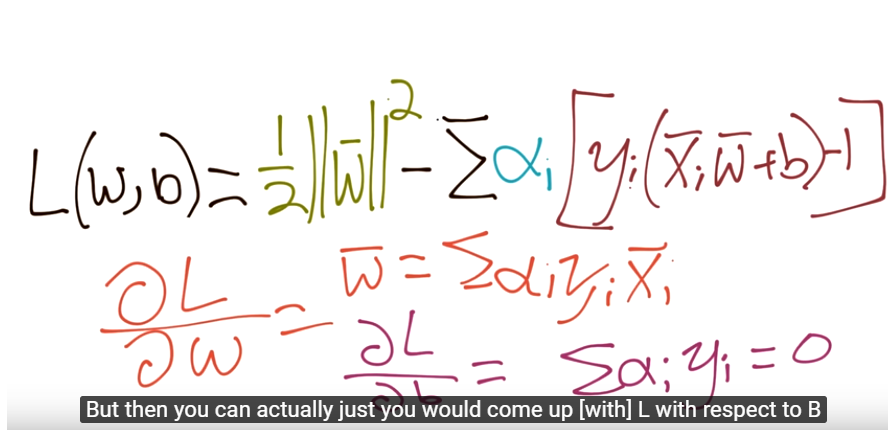 L(w,b)=½||w̅||²-Σαᵢ[yᵢ(x̅ᵢw̅+b)-1]
∂L/∂w = w̅=Σαᵢyᵢx̅ᵢ
∂L/∂b = Σαᵢyᵢ=0
But then you can actually just you would come up [with] L with respect to B